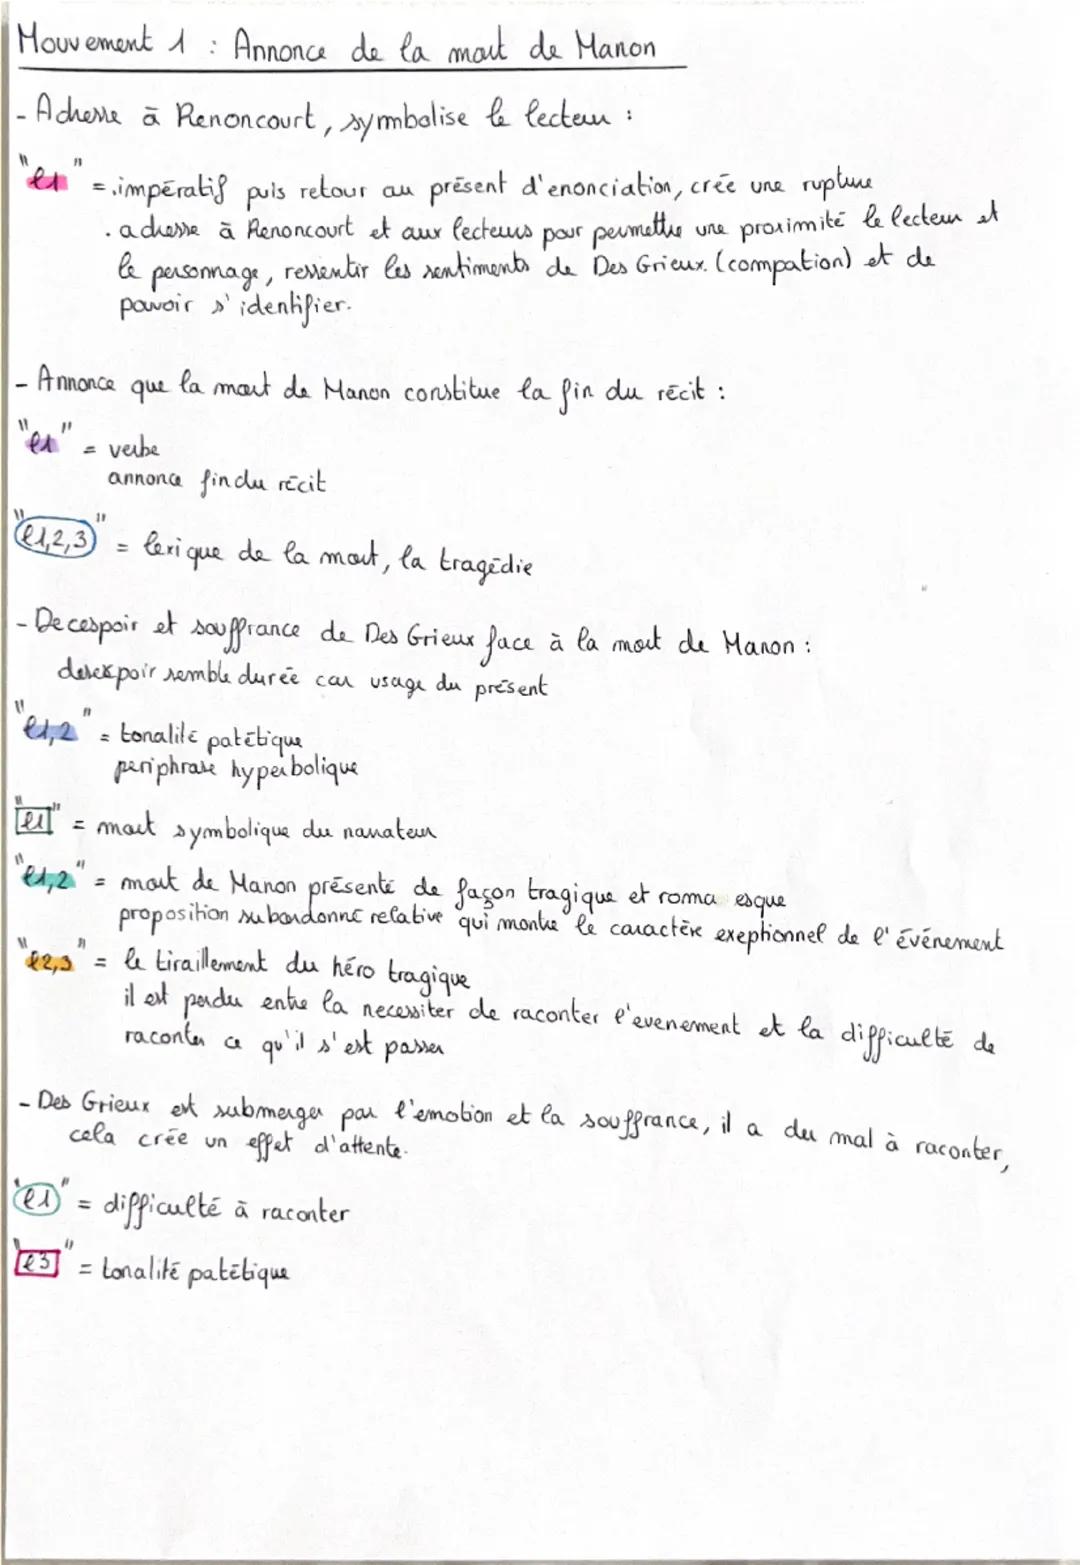 Mouvement 1 : Annonce de la mort de Manon
- Adresse à Renoncourt, symbolise le lecteur :
"l1" = . impératif puis retour au présent d'enonciation, crée une rupture
. adresse à Renoncourt et aux lecteurs pour permettre une proximité le lecteur et
le personnage, ressentir les sentiments de Des Grieux. (compation) et de
pouvoir s'identifier.
- Annonce que la mort de Manon constitue la fin du récit :
"l1" = verbe
annonce fin du récit
"l1,2,3" = lexique de la mort, la tragédie
- Decespoir et souffrance de Des Grieux face à la mort de Manon :
desespoir semble durée car usage du présent
"l1,2" = tonalité patétique
periphrase hyperbolique
"l1" = mort symbolique du narrateur
"l1,2" = mort de Manon présenté de façon tragique et roma esque
proposition subordonné relative qui montre le caractère exeptionnel de l'événement
"l2,3" = le tiraillement du héro tragique
il est perdu entre la necessiter de raconter l'evenement et la difficulté de
raconter ce qu'il s'est passer
- Des Grieux est submerger par l'emotion et la souffrance, il a du mal à raconter,
cela crée un effet d'attente.
"l1" = difficulté à raconter
"l3" = tonalité patétique